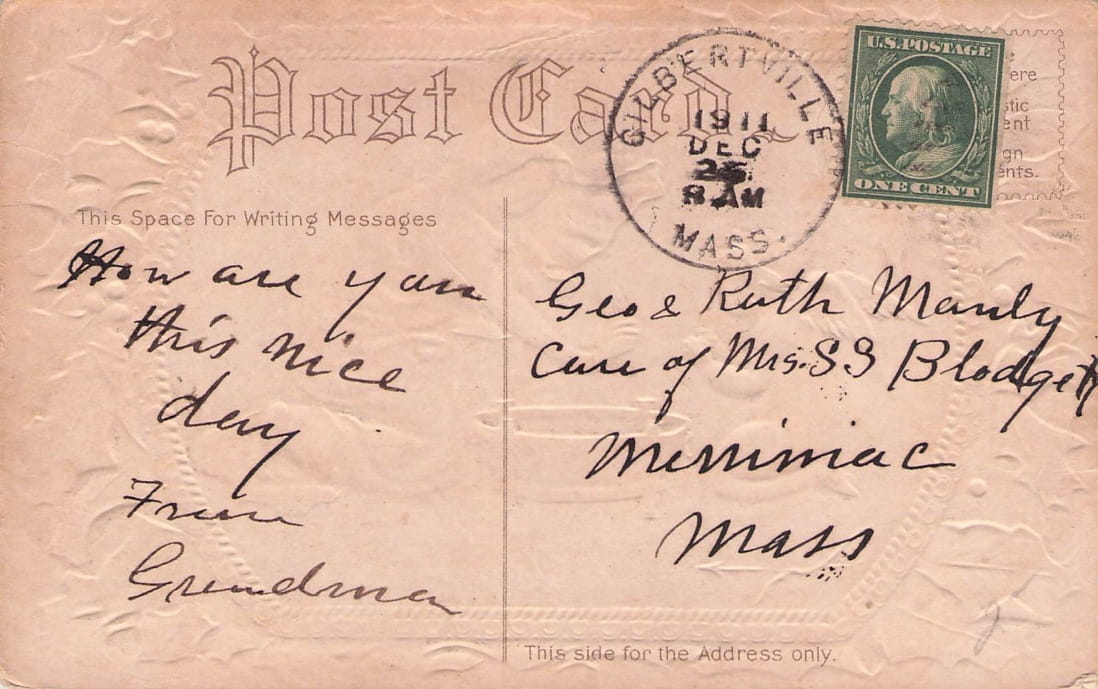 Post Card
GILBERTVILLE
1911
DEC
8 AM
MASS.
U.S. POSTAGE
ONE CENT
ere
stic
ent
gn
ents.
This Space For Writing Messages
How are you
this nice
day
From
Grandma
Geo & Ruth Manly
Care of Mrs. S S Blodgett
Merrimac
Mass
This side for the Address only.